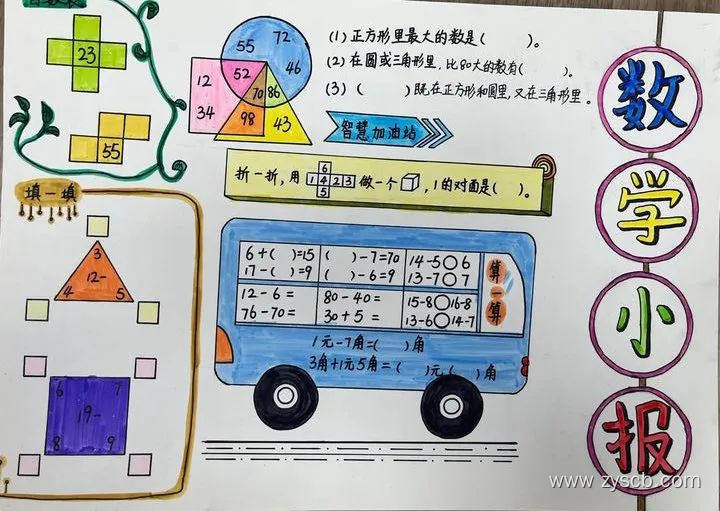 23
55
55
72
12
52
46
70
86
34
98
43
(1) 正方形里最大的数是(    )。
(2) 在圆或三角形里,比80大的数有(    )。
(3) (    )既在正方形和圆里,又在三角形里。
智慧加油站
折一折,用
6
1 4 2 3
5
做一个
,1的对面是(    )。
填一填
3
12-
4
5
6
7
19-
8
9
6+(  )=15
(  )-7=70
14-5○6
17-(  )=9
(  )-6=9
13-7○7
12-6=
80-40=
15-8○16-8
76-70=
30+5=
13-6○14-7
算一算
1元-7角=(  )角
3角+1元5角=(  )元(  )角
数学小报
www.zyscb.com